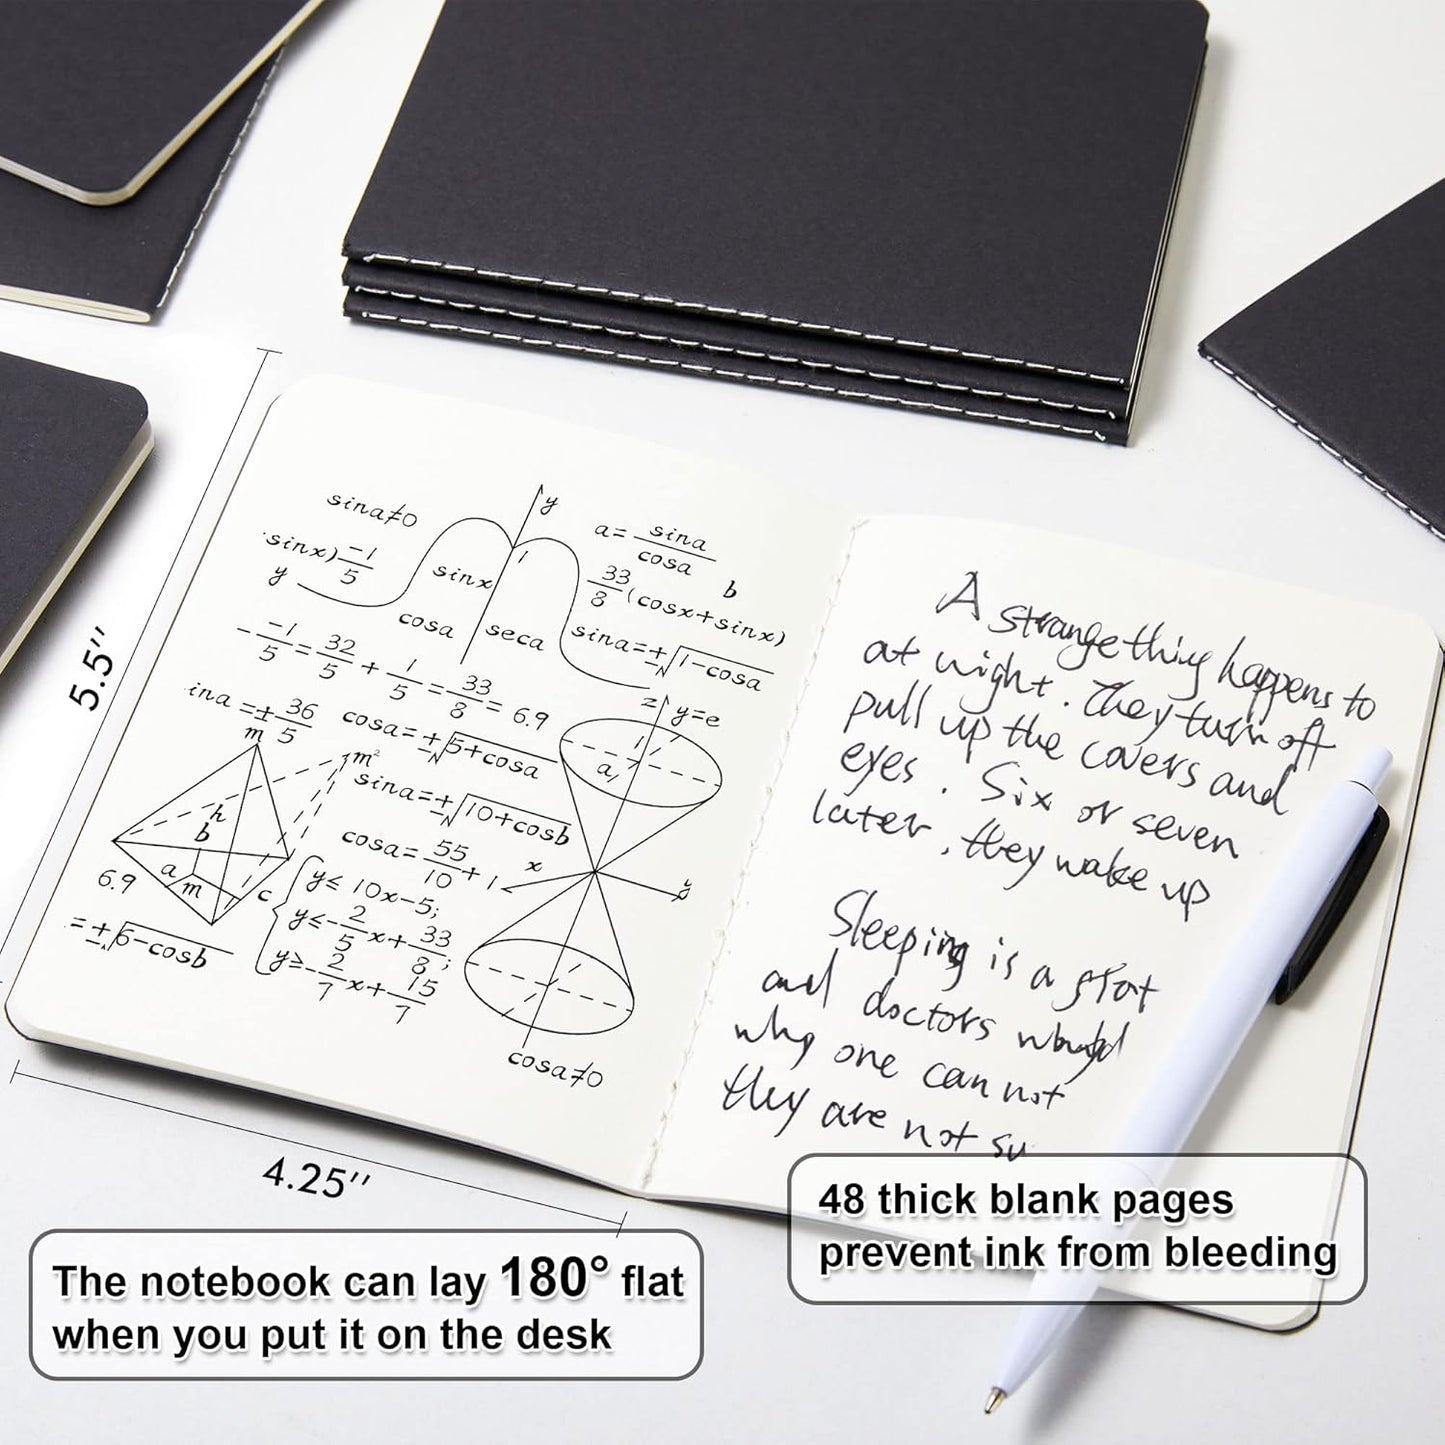 sina≠0
y
a= sina/cosa
sinx) -1/5
y
sinx
1
33/8 (cosx+sinx)
b
cosa
seca
sina=±√1-cosa
- -1/5 = 32/5 + 1/5 = 33/8 = 6.9
z
y=e
ina=± 36/5
cosa=±√5+cosa
1
a
m
m²
sina=±√10+cosb
h
b
cosa= 55/10 +1
x
y
a
m
c
6.9
y≤ 10x-5;
y≤- 2/5 x+ 33/8;
y≥- 2/7 x+ 15/7
=±√6-cosb
cosa≠0
A strange thing happens to
at night. They turn off
pull up the covers and
eyes. Six or seven
later, they wake up
Sleeping is a great
and doctors would
why one can not
they are not su
5.5''
4.25''
The notebook can lay 180° flat
when you put it on the desk
48 thick blank pages
prevent ink from bleeding